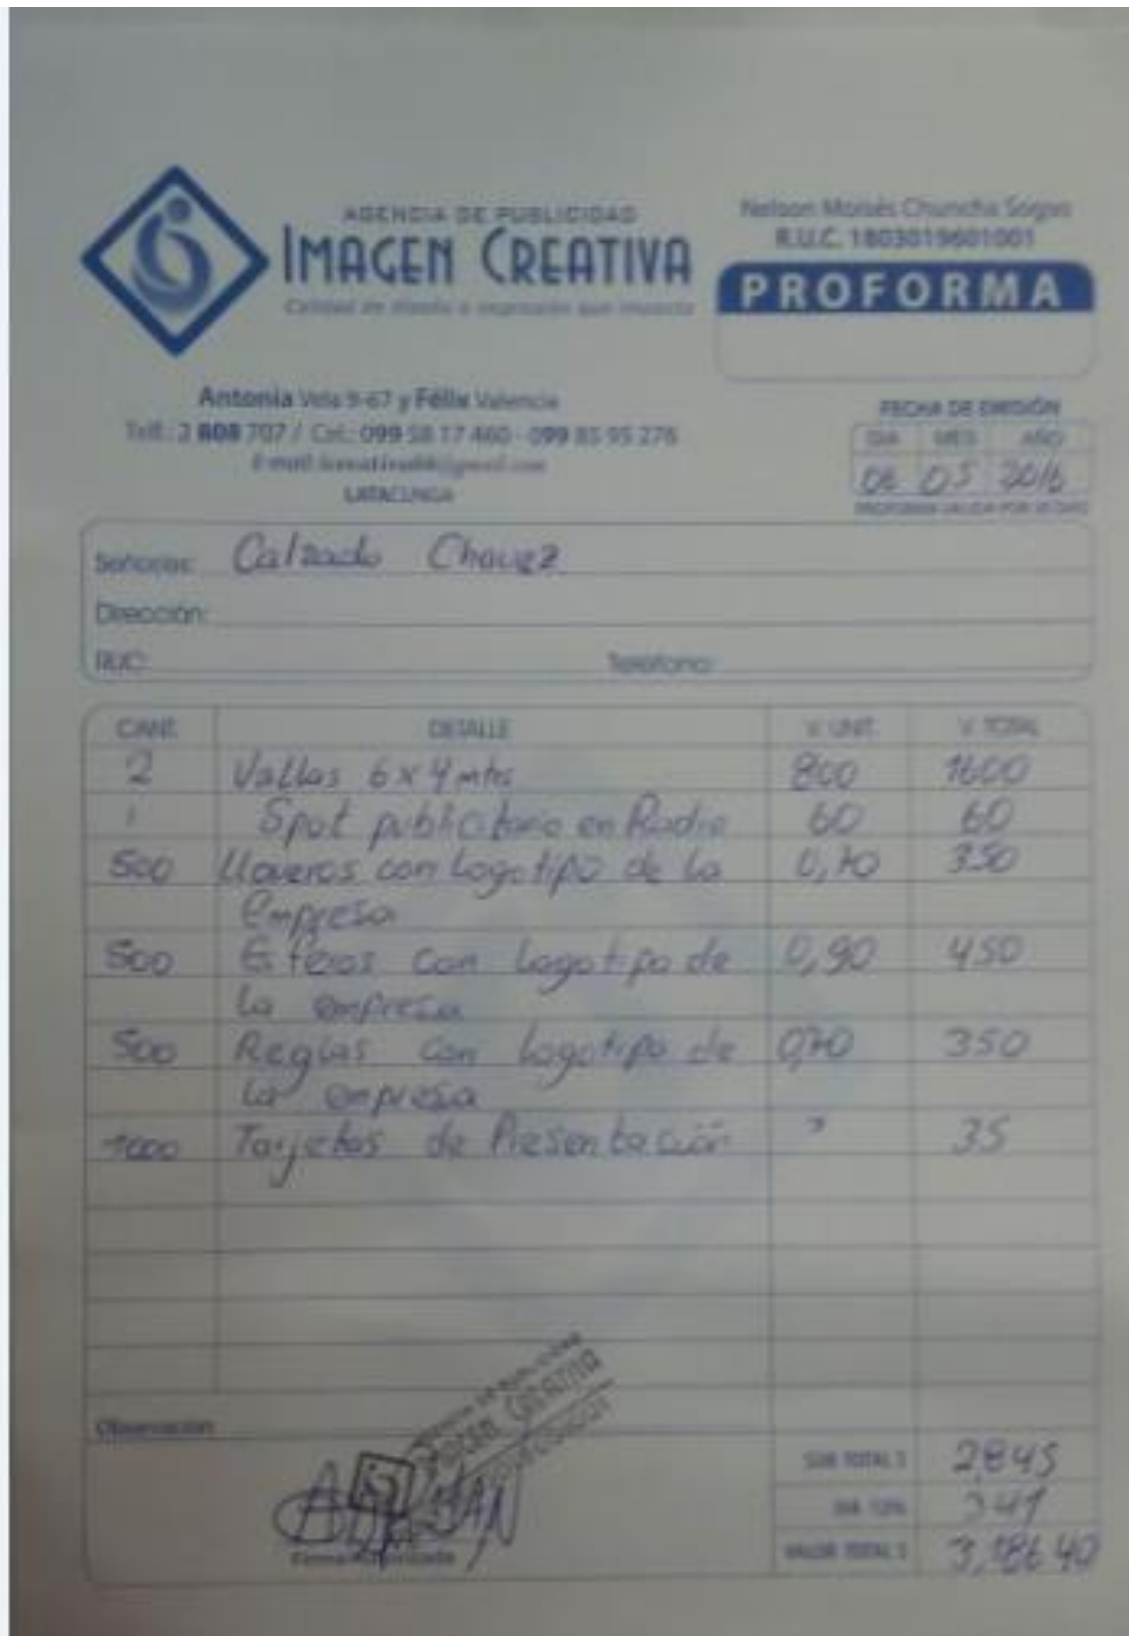 AGENCIA DE PUBLICIDAD
IMAGEN CREATIVA
Calidad en diseño e impresión que impacta
Nelson Moisés Chuncha Sogso
R.U.C. 1803019601001
PROFORMA
Antonia Vela 9-67 y Félix Valencia
Telf.: 2 808 707 / Cel.: 099 58 17 460 - 099 85 95 276
E-mail:
LATACUNGA
FECHA DE EMISIÓN
DIA MES AÑO
06 05 2016
PROFORMA VALIDA POR DIAS
Señor(es): Calzado Chavez
Dirección:
RUC: Teléfono:
CANT. DETALLE V. UNIT. V. TOTAL
2 Vallas 6 x 4 mts 800 1600
1 Spot publicitario en Radio 60 60
500 Llaveros con Logotipo de la 0,70 350
Empresa
500 Esferos con Logotipo de 0,90 450
la empresa
500 Reglas con Logotipo de 0,70 350
la empresa
1000 Tarjetas de Presentación " 35
Observación:
AGENCIA DE PUBLICIDAD
IMAGEN CREATIVA
Firma Autorizada
SUB TOTAL $ 2,845
IVA 12% 341
VALOR TOTAL $ 3,186 40